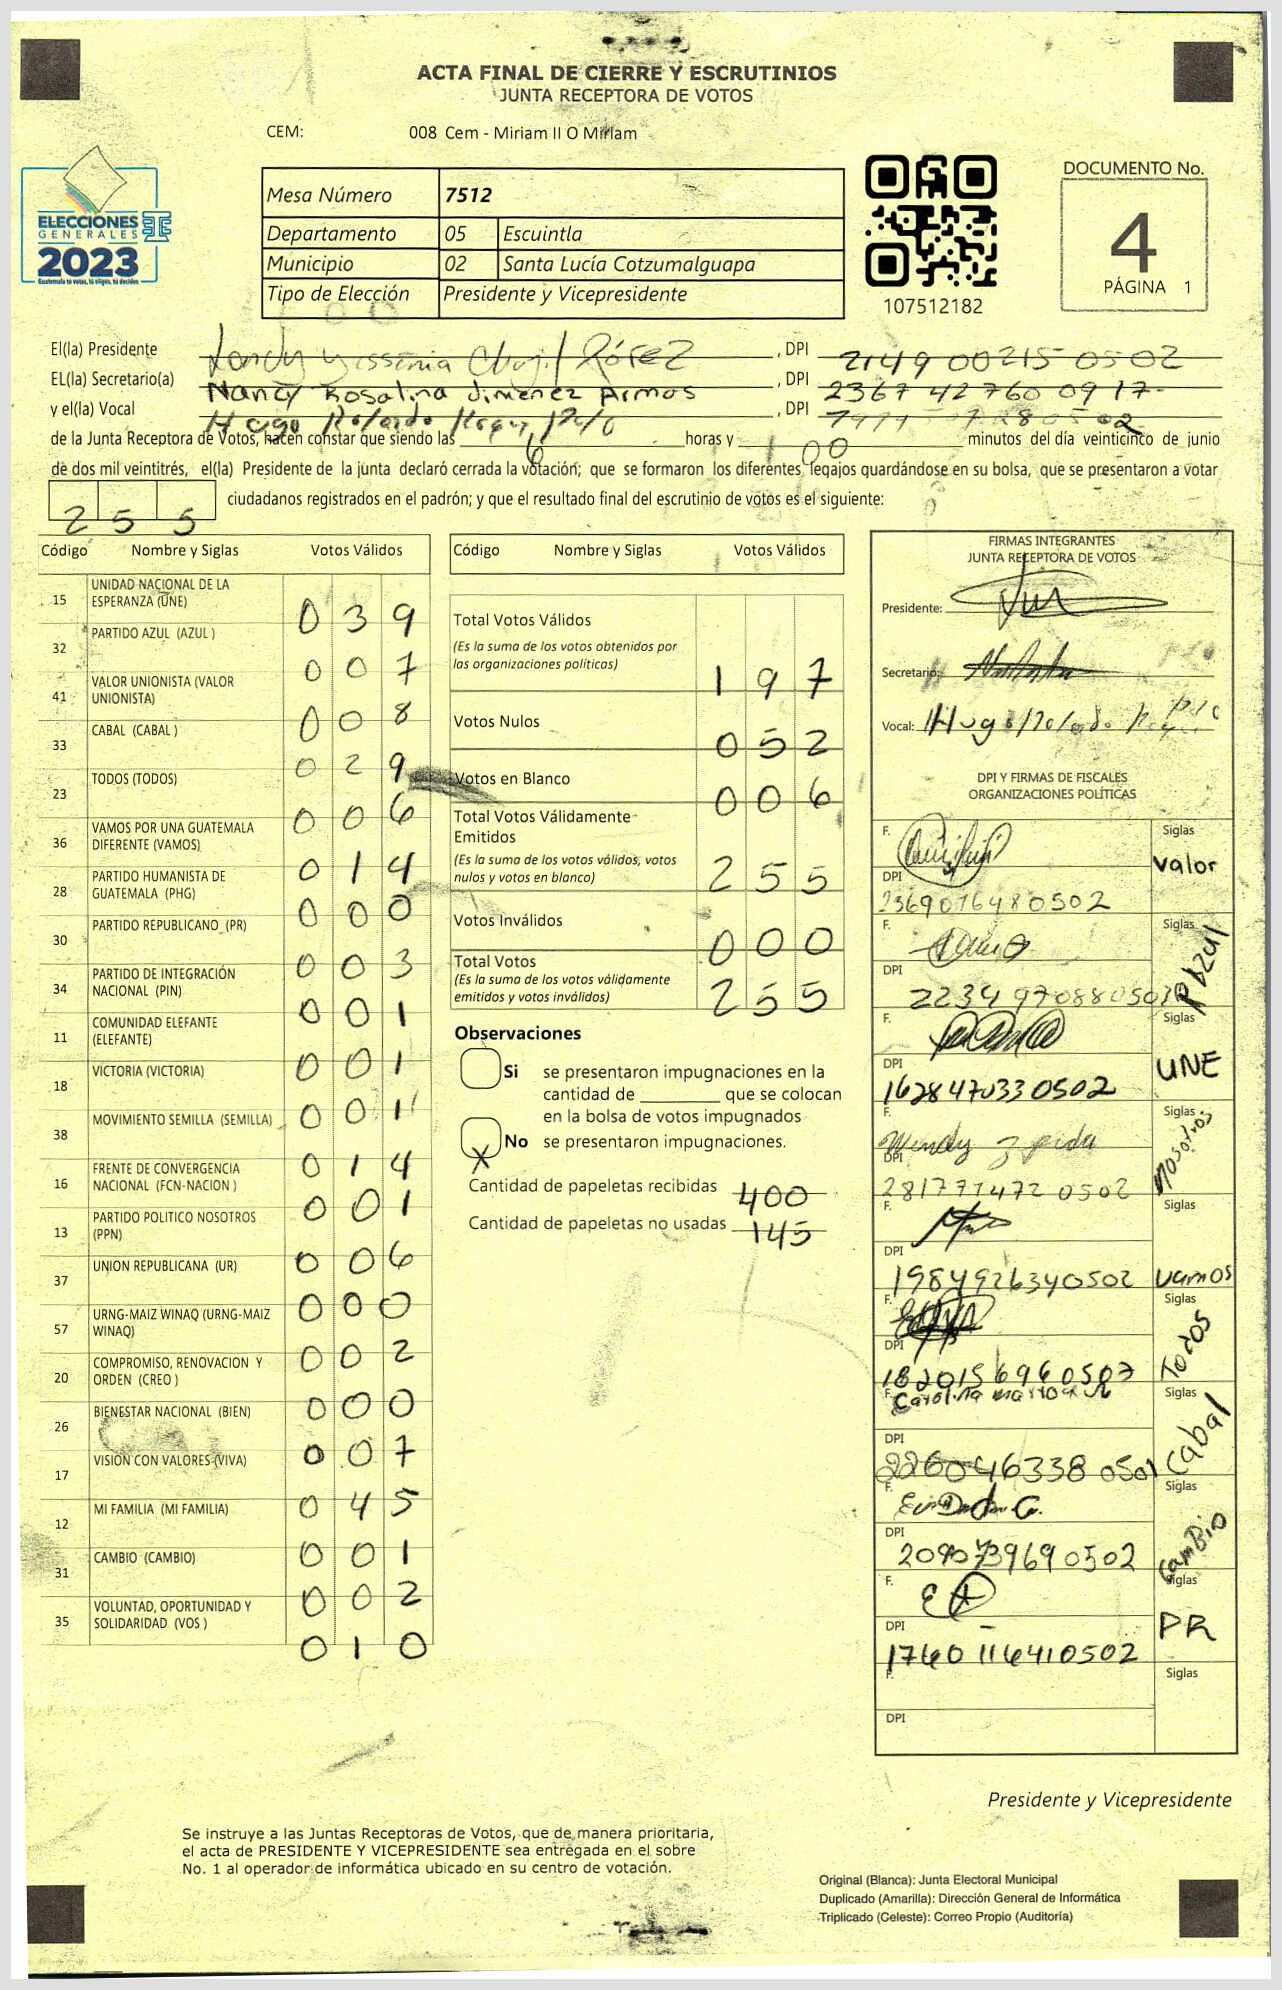 ACTA FINAL DE CIERRE Y ESCRUTINIOS
JUNTA RECEPTORA DE VOTOS
CEM: 008 Cem - Miriam II O Miriam
ELECCIONES
GENERALES
2023
Guatemala tu votas, tú eliges, tú decides
Mesa Número 7512
Departamento 05 Escuintla
Municipio 02 Santa Lucía Cotzumalguapa
Tipo de Elección Presidente y Vicepresidente
107512182
DOCUMENTO No.
4
PÁGINA 1
El(la) Presidente , DPI 2149 00215 0502
EL(la) Secretario(a) Nancy Rosalina Jimenez Armas , DPI 2367 42760 0917
y el(la) Vocal Hugo Rolando , DPI
de la Junta Receptora de Votos, hacen constar que siendo las 6 horas y 00 minutos del día veinticinco de junio
de dos mil veintitrés, el(la) Presidente de la junta declaró cerrada la votación; que se formaron los diferentes legajos quardándose en su bolsa, que se presentaron a votar
255 ciudadanos registrados en el padrón; y que el resultado final del escrutinio de votos es el siguiente:
Código Nombre y Siglas Votos Válidos
15 UNIDAD NACIONAL DE LA ESPERANZA (UNE) 039
32 PARTIDO AZUL (AZUL ) 007
41 VALOR UNIONISTA (VALOR UNIONISTA) 008
33 CABAL (CABAL ) 029
23 TODOS (TODOS) 006
36 VAMOS POR UNA GUATEMALA DIFERENTE (VAMOS) 014
28 PARTIDO HUMANISTA DE GUATEMALA (PHG) 000
30 PARTIDO REPUBLICANO (PR) 003
34 PARTIDO DE INTEGRACIÓN NACIONAL (PIN) 001
11 COMUNIDAD ELEFANTE (ELEFANTE) 001
18 VICTORIA (VICTORIA) 001
38 MOVIMIENTO SEMILLA (SEMILLA) 014
16 FRENTE DE CONVERGENCIA NACIONAL (FCN-NACION ) 001
13 PARTIDO POLITICO NOSOTROS (PPN) 006
37 UNION REPUBLICANA (UR) 000
57 URNG-MAIZ WINAQ (URNG-MAIZ WINAQ) 002
20 COMPROMISO, RENOVACION Y ORDEN (CREO ) 000
26 BIENESTAR NACIONAL (BIEN) 007
17 VISION CON VALORES (VIVA) 045
12 MI FAMILIA (MI FAMILIA) 001
31 CAMBIO (CAMBIO) 002
35 VOLUNTAD, OPORTUNIDAD Y SOLIDARIDAD (VOS ) 010
Código Nombre y Siglas Votos Válidos
Total Votos Válidos
(Es la suma de los votos obtenidos por
las organizaciones politicas) 197
Votos Nulos 052
Votos en Blanco 006
Total Votos Válidamente
Emitidos
(Es la suma de los votos válidos, votos
nulos y votos en blanco) 255
Votos Inválidos 000
Total Votos
(Es la suma de los votos válidamente
emitidos y votos inválidos) 255
Observaciones
Si se presentaron impugnaciones en la
cantidad de ________ que se colocan
en la bolsa de votos impugnados
X No se presentaron impugnaciones.
Cantidad de papeletas recibidas 400
Cantidad de papeletas no usadas 145
FIRMAS INTEGRANTES
JUNTA RECEPTORA DE VOTOS
Presidente:
Secretario:
Vocal: Hugo Rolando
DPI Y FIRMAS DE FISCALES
ORGANIZACIONES POLÍTICAS
F. Siglas
Valor
DPI
2369076480502
F. Siglas
DPI
F. Siglas
UNE
DPI
1628470330502
F. Siglas
Wendy
Nosotros
DPI
2817714720502
F. Siglas
DPI
1984926340502 Vamos
F. Siglas
Todos
DPI
1820156960502
F. Siglas
Cabal
DPI
F. Siglas
Cambio
DPI
F. Siglas
PR
DPI
1760116410502
F. Siglas
DPI
Presidente y Vicepresidente
Se instruye a las Juntas Receptoras de Votos, que de manera prioritaria,
el acta de PRESIDENTE Y VICEPRESIDENTE sea entregada en el sobre
No. 1 al operador de informática ubicado en su centro de votación.
Original (Blanca): Junta Electoral Municipal
Duplicado (Amarilla): Dirección General de Informática
Triplicado (Celeste): Correo Propio (Auditoría)